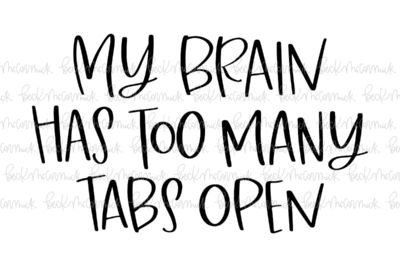 MY BRAIN
HAS TOO MANY
TABS OPEN